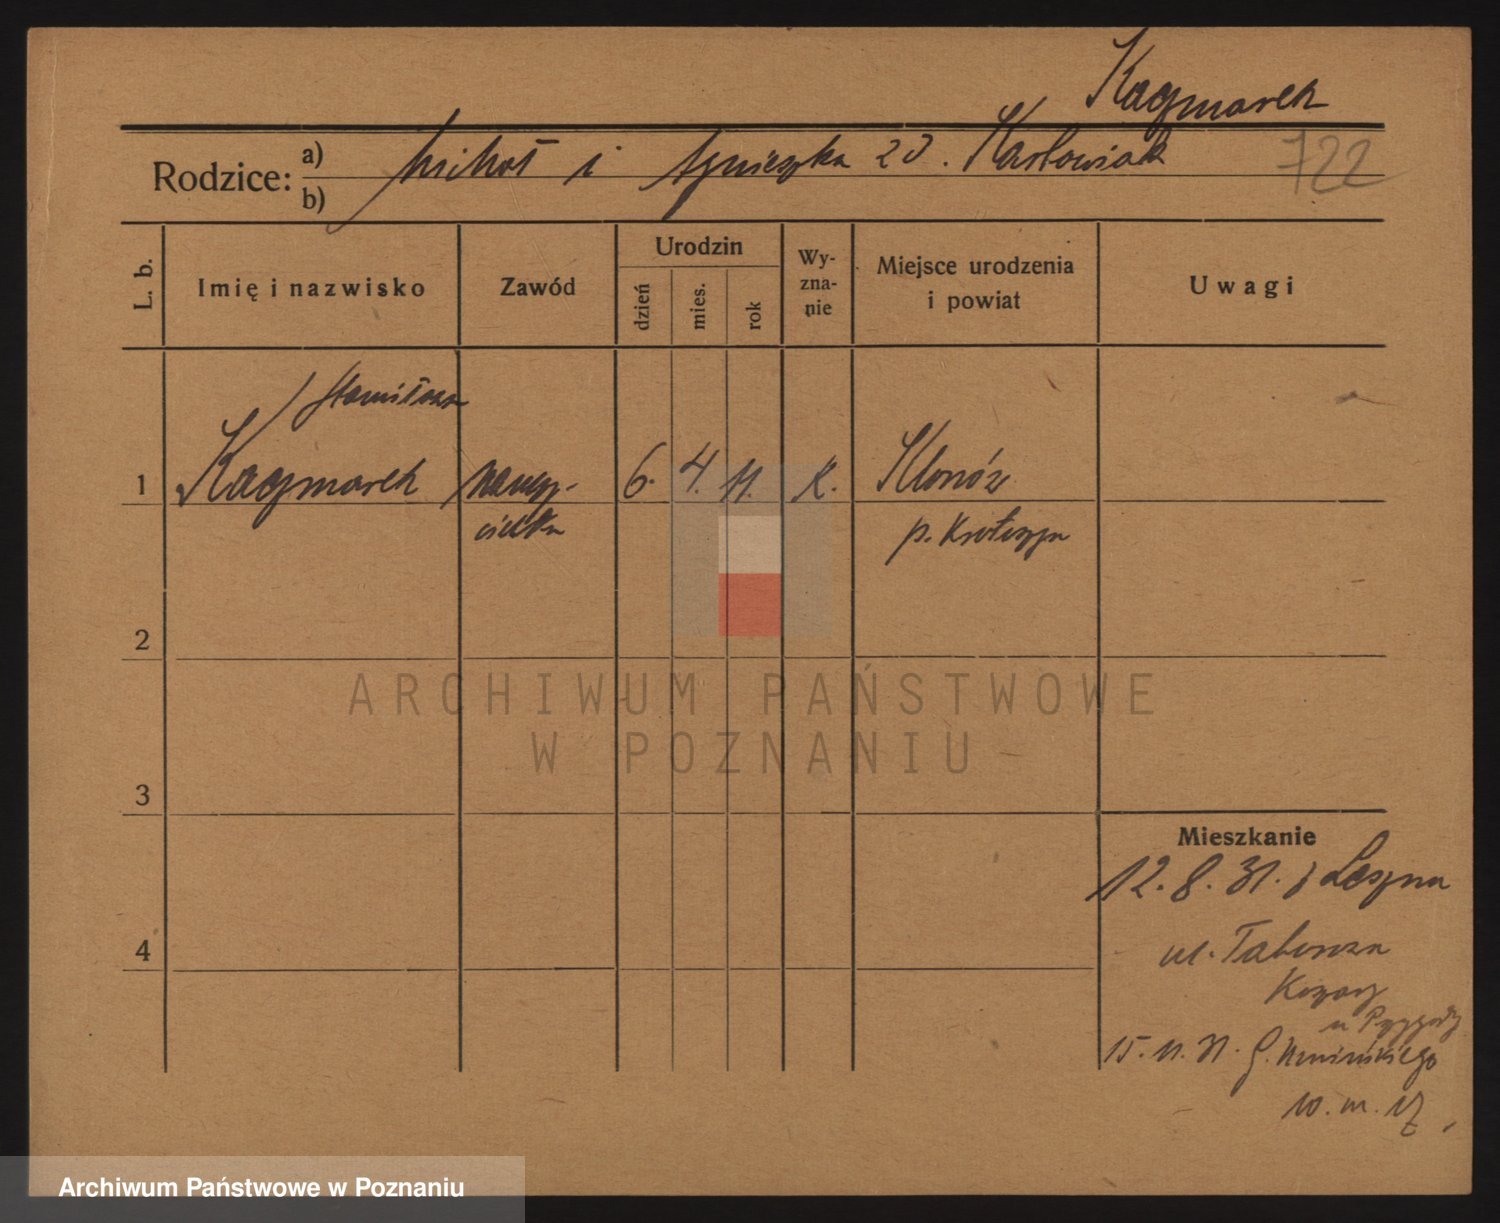 Kaczmarek
Rodzice: a) Michał i Agnieszka zd. Karłowiak
b)
722
L. b.
Imię i nazwisko
Zawód
Urodzin
dzień
mies.
rok
Wy-
zna-
nie
Miejsce urodzenia
i powiat
Uwagi
Stanisława
1 Kaczmarek nauczy- 6. 4. 11. K.
cielka p. Krotoszyn
2
ARCHIWUM PAŃSTWOWE
W POZNANIU
3
Mieszkanie
12.8.31. z Leszna
4
ul.
15.11.31. G. Umińskiego
10. m. 17
Archiwum Państwowe w Poznaniu